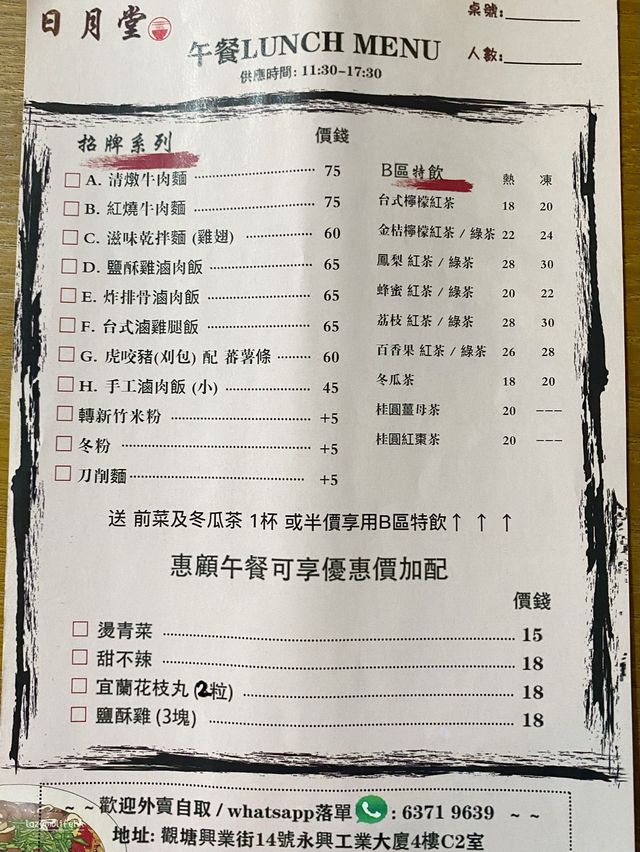 日月堂
桌號:
午餐LUNCH MENU
人數:
供應時間: 11:30-17:30
招牌系列 價錢
A. 清燉牛肉麵 75
B. 紅燒牛肉麵 75
C. 滋味乾拌麵 (雞翅) 60
D. 鹽酥雞滷肉飯 65
E. 炸排骨滷肉飯 65
F. 台式滷雞腿飯 65
G. 虎咬豬(刈包) 配 蕃薯條 60
H. 手工滷肉飯 (小) 45
轉新竹米粉 +5
冬粉 +5
刀削麵 +5
B區特飲 熱 凍
台式檸檬紅茶 18 20
金桔檸檬紅茶 / 綠茶 22 24
鳳梨 紅茶 / 綠茶 28 30
蜂蜜 紅茶 / 綠茶 20 22
荔枝 紅茶 / 綠茶 28 30
百香果 紅茶 / 綠茶 26 28
冬瓜茶 18 20
桂圓薑母茶 20 ---
桂圓紅棗茶 20 ---
送 前菜及冬瓜茶 1杯 或半價享用B區特飲↑ ↑ ↑
惠顧午餐可享優惠價加配
價錢
燙青菜 15
甜不辣 18
宜蘭花枝丸 (2粒) 18
鹽酥雞 (3塊) 18
~ ~ 歡迎外賣自取 / whatsapp落單 : 6371 9639 ~ ~
地址: 觀塘興業街14號永興工業大廈4樓C2室